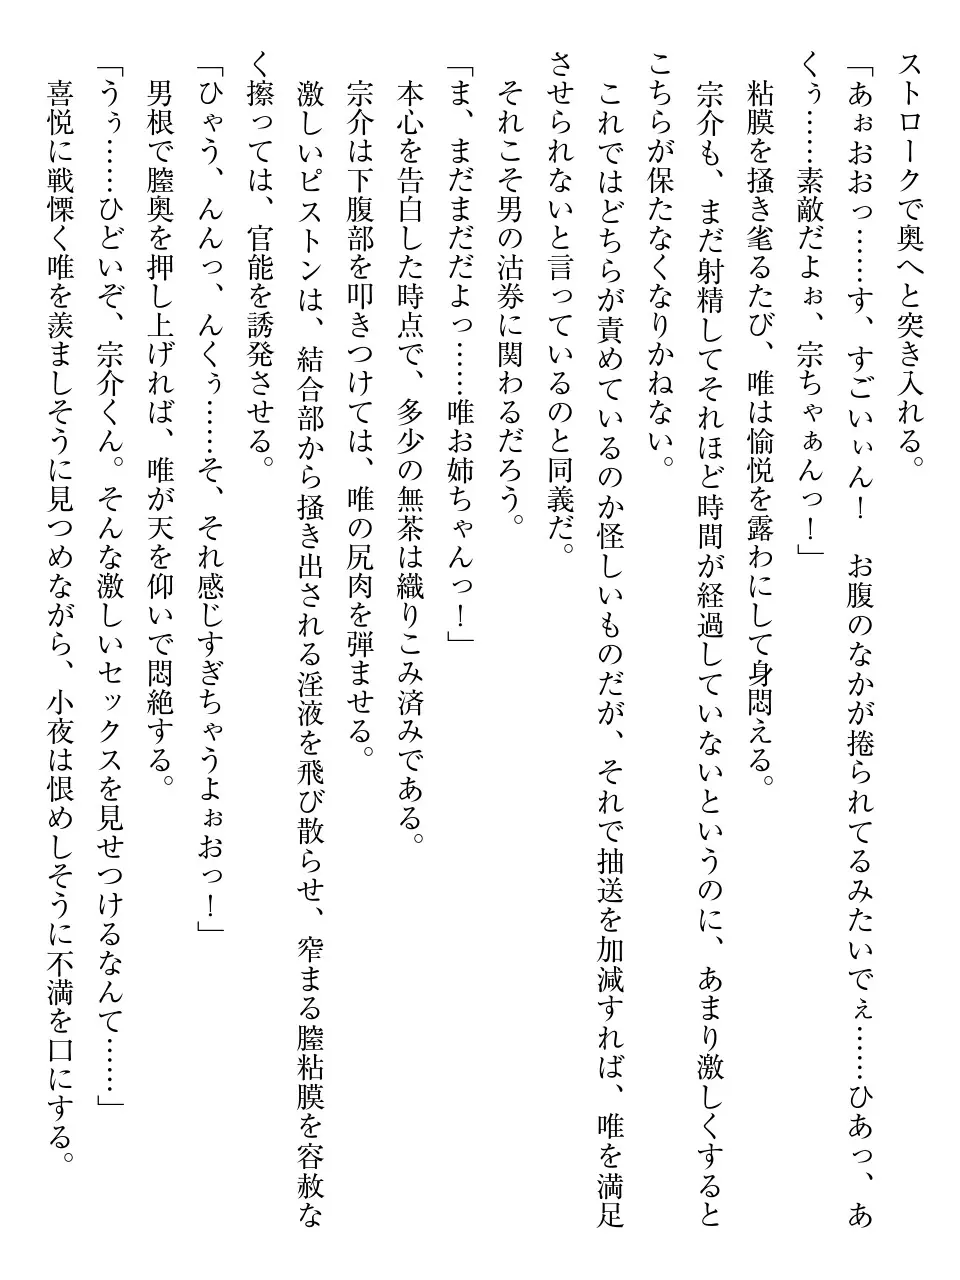 ストロークで奥へと突き入れる。
「あぉおおっ……す、すごいぃん！　お腹のなかが捲られてるみたいでぇ……ひあっ、あ
くぅ……素敵だよぉ、宗ちゃぁんっ！」
粘膜を掻き毟るたび、唯は愉悦を露わにして身悶える。
宗介も、まだ射精してそれほど時間が経過していないというのに、あまり激しくすると
こちらが保たなくなりかねない。
これではどちらが責めているのか怪しいものだが、それで抽送を加減すれば、唯を満足
させられないと言っているのと同義だ。
それこそ男の沽券に関わるだろう。
「ま、まだまだだよっ……唯お姉ちゃんっ！」
本心を告白した時点で、多少の無茶は織りこみ済みである。
宗介は下腹部を叩きつけては、唯の尻肉を弾ませる。
激しいピストンは、結合部から掻き出される淫液を飛び散らせ、窄まる膣粘膜を容赦な
く擦っては、官能を誘発させる。
「ひゃう、んんっ、んくぅ……そ、それ感じすぎちゃうよぉおっ！」
男根で膣奥を押し上げれば、唯が天を仰いで悶絶する。
「うぅ……ひどいぞ、宗介くん。そんな激しいセックスを見せつけるなんて……」
喜悦に戦慄く唯を羨ましそうに見つめながら、小夜は恨めしそうに不満を口にする。